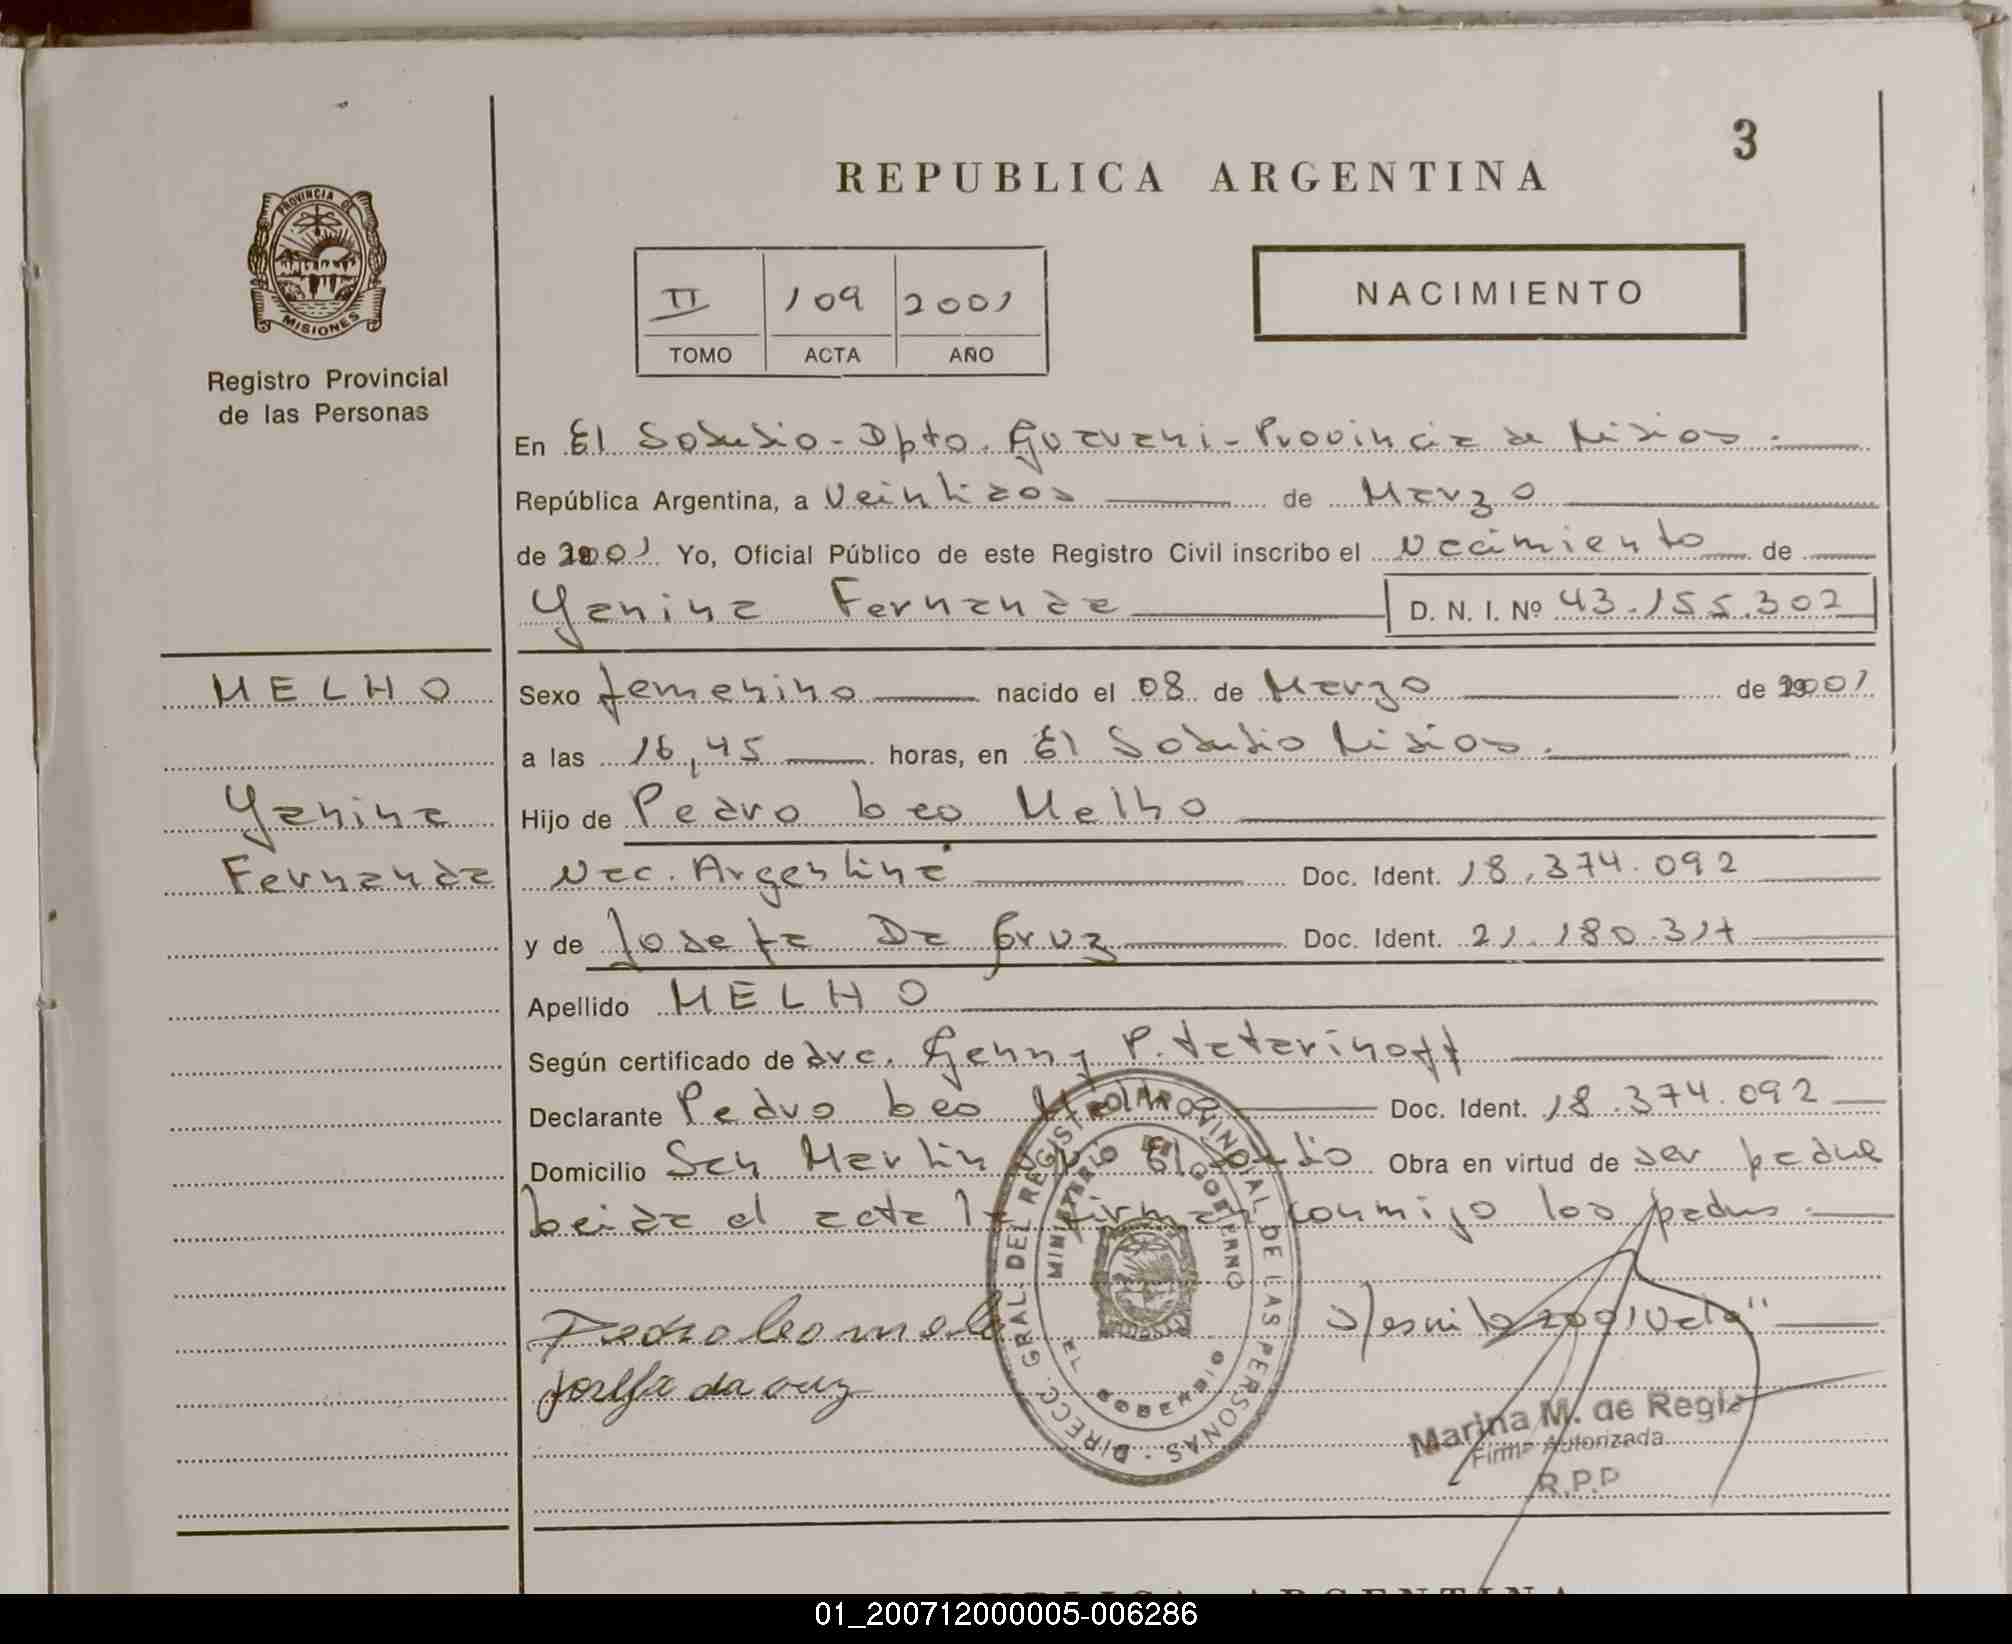 3
REPUBLICA ARGENTINA
PROVINCIA DE
MISIONES
Registro Provincial
de las Personas
II 109 2001
TOMO ACTA AÑO
NACIMIENTO
En El Soberbio - Dpto. Guarani - Provincia de Misiones.
República Argentina, a Veintidos de Marzo
de 2001 Yo, Oficial Público de este Registro Civil inscribo el Nacimiento de
Yanina Fernanda D. N. I. Nº 43.155.302
MELHO
Yanina
Fernanda
Sexo femenino nacido el 08 de Marzo de 2001
a las 16,45 horas, en El Soberbio Misiones.
Hijo de Pedro Leo Melho
Nac. Argentina Doc. Ident. 18.374.092
y de Josefa Da Cruz Doc. Ident.
Apellido MELHO
Según certificado de dra. Genny P. Tatarinoff
Declarante Pedro Leo Melho Doc. Ident. 18.374.092
Domicilio San Martin El Soberbio Obra en virtud de ser padre
Leida el acta la firman conmigo los padres.
Pedro leo melo
josefa da cruz
DIRECC. GRAL. DEL REGISTRO PROVINCIAL DE LAS PERSONAS
MINISTERIO DE GOBIERNO
EL SOBERBIO
Marina M. de Regis
Firma Autorizada
R.P.P
REPUBLICA ARGENTINA
01_200712000005-006286